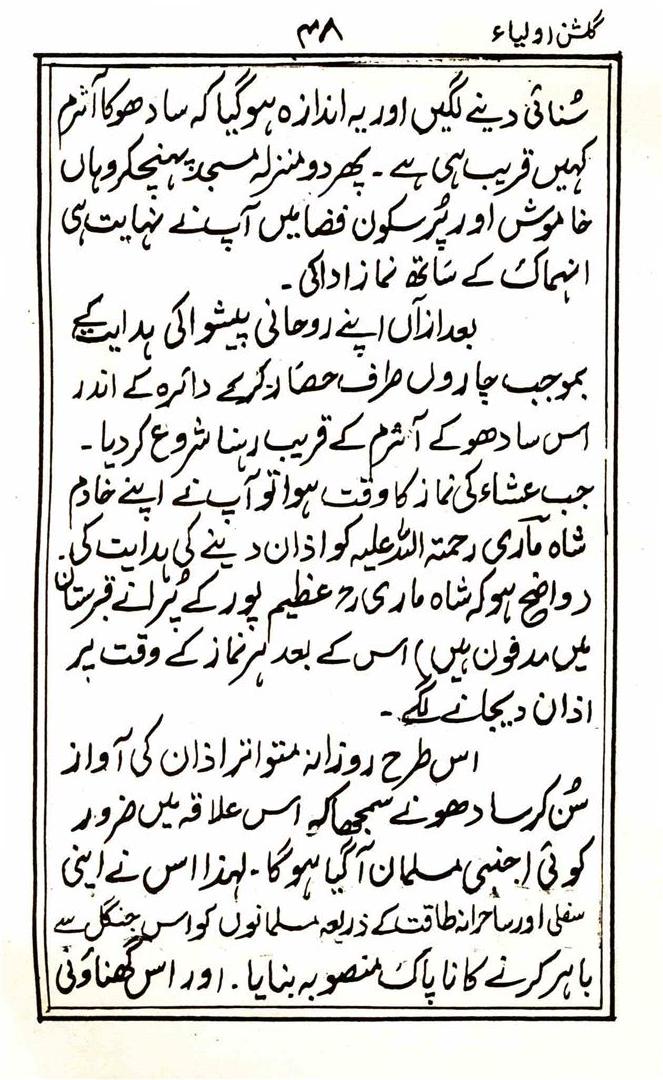 گلشن اولیاء ۳۸
سُنائی دینے لگیں اور یہ اندازہ ہوگیا کہ سادھو کا آشرم
کہیں قریب ہی ہے ۔ پھر دو منزلہ مسجد پہنچکر وہاں
خاموش اور پُرسکون فضا میں آپ نے نہایت ہی
انہماک کے ساتھ نماز ادا کی ۔
بعد ازآں اپنے روحانی پیشوا کی ہدایت کے
بموجب چاروں طرف حصار کرکے دائرہ کے اندر
اس سادھو کے آشرم کے قریب رہنا شروع کردیا ۔
جب عشاء کی نماز کا وقت ہوا تو آپ نے اپنے خادم
شاہ ماری رحمتہ اللہ علیہ کو اذان دینے کی ہدایت کی ۔
(واضح ہو کہ شاہ ماری رح عظیم پور کے پُرانے قبرستان
میں مدفون ہیں) اس کے بعد ہر نماز کے وقت پر
اذان دیجانے لگی ۔
اس طرح روزانہ متواتر اذان کی آواز
سُن کر سادھو نے سمجھا کہ اس علاقہ میں ضرور
کوئی اجنبی مسلمان آگیا ہوگا ۔ لہذا اس نے اپنی
سفلی اور ساحرانہ طاقت کے ذریعہ مسلمانوں کو اس جنگل سے
باہر کرنے کا ناپاک منصوبہ بنایا ۔ اور اس گھناؤنی